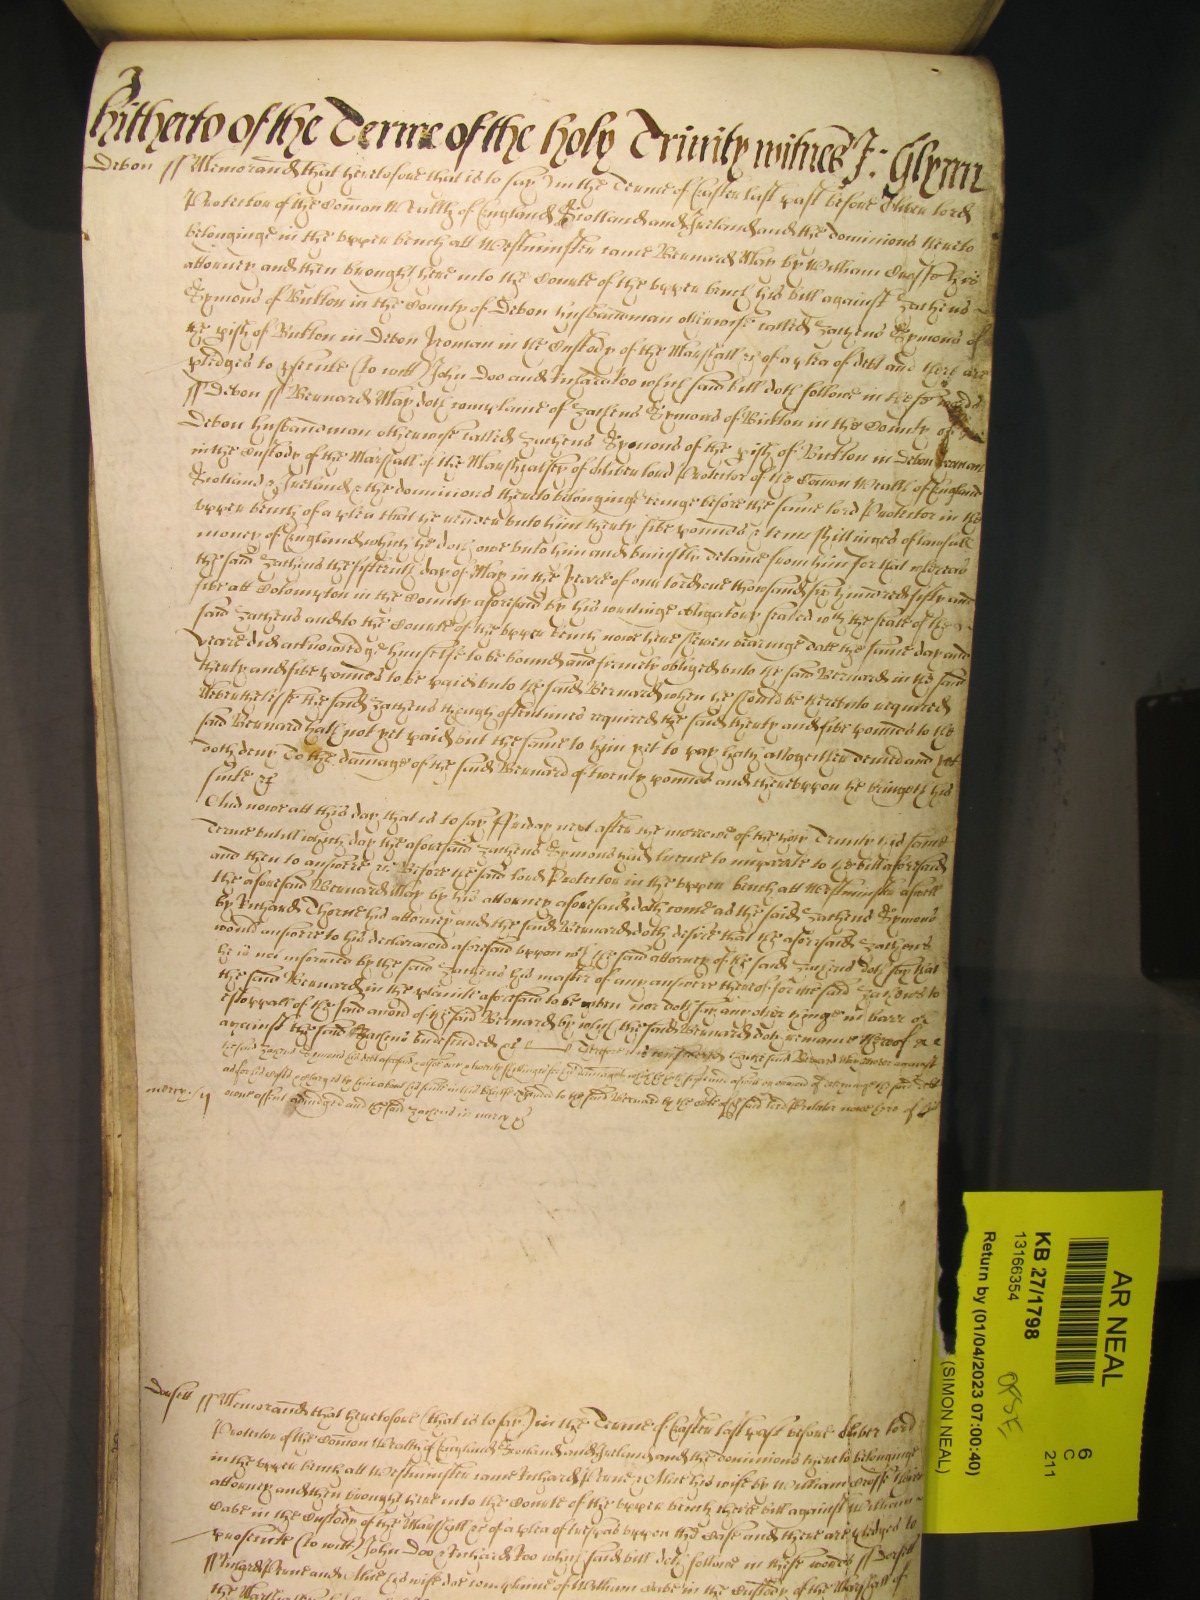 3
hitherto of the Terme of the holy Trinity witnes J: Glynn
Devon ss Memorand that heretofore that is to say in the Terme of Easter last past before Oliver lord
Protector of the Com̄on Wealth of England Scotland and Ireland and the dominions thereto
belonginge in the upper bench att Westminster came Bernard May by William Crosse his
attorney and then brought here into the Courte of the upper bench his bill against Zacheus
Symons of Buckton in the County of Devon husbandman otherwise called Zacheus Symons of
the pish of Buckton in Devon yeoman in the Custody of the Marshall &c of a plea of debt and there are
pledges to psecute (to witt) John Doo and Richard Roo wch said bill doth followe in these words
ss Devon ss Bernard May doth complaine of Zacheus Symons of Buckton in the County of
Devon husbandman otherwise called Zacheus Symons of the pish of Buckton in Devon yeoman
in the Custody of the Marshall of the Marshalsey of Oliver lord Protector of the Com̄on Wealth of England
Scotland & Ireland & the dominions thereto belonginge beinge before the same lord Protector in the
upper bench of a plea that he render unto him thirty five pounds & tenn shillinges of lawfull
money of England which he doth owe unto him and uniustly detaine from him For that whereas
the said Zacheus the fifteenth day of May in the yeare of our lord one thowsand six hundred fifty and
five att in the County aforesaid by his writinge obligatory sealed wth the seale of the
said Zacheus and to the Courte of the upper bench nowe here shewen bearinge date the same day and
yeare did acknowledge himselfe to be bound and firmely obliged unto the said Bernard in the said
thirty and five pounds to be paid unto the said Bernard when he should be thereunto required
Neverthelesse the said Zacheus though oftentimes required the said thirty and five pounds to the
said Bernard hath not yet paid but the same to him yet to pay hath altogether denied and yet
doth deny To the damage of the said Bernard of twenty pounds and thereuppon he bringeth his
suite &c
And nowe att this day that is to say Friday next after the morrowe of the holy Trinity this same
Terme untill which day the aforesaid Zacheus Symons had licence to imparle to the bill aforesaid
and then to answere &c Before the said lord Protector in the upper bench att Westminster aswell
the aforesaid Bernard May by his attorney aforesaid doth come as the said Zacheus Symons
by Richard Thorne his attorney and the said Bernard doth desire that the aforesaid Zacheus
would answere to his declaracon aforesaid uppon wch the said attorney of the said Zacheus doth say that
he is not informed by the said Zacheus his master of any answere thereof for the said Zacheus to
the said Bernard in the plainte aforesaid to be given nor doth say any other thinge in barr or
estoppall of the said accon of the said Bernard by which the said Bernard doth remaine thereof
against the said Zacheus undefended &c Therefore it is considered that the said Bernard May recover against
the said Zacheus Symons his debt aforesaid
as for his costs & charges by him about his suite in this behalfe expended to the said Bernard by the Courte of the said lord Protector nowe here of his
mercy ss owne assent adiudged and the said Zacheus in mercy &c
Dorsett ss Memorand that heretofore (that is to say) in the Terme of Easter last past before Oliver lord
Protector of the Com̄on Wealth of England Scotland and Ireland and the dominions thereto belonginge
in the upper bench att Westminster came Richard & Alice his wife by William Crosse their
attorney and then brought here into the Courte of the upper bench theire bill against William
in the Custody of the Marshall &c of a plea of trespas uppon the Case and there are pledges to
prosecute (to witt) John Doo & Richard Roo which said bill doth followe in these words ss Dorsett
ss Richard and Alice his wife doe complaine of William in the Custody of the Marshall of
AR NEAL
KB 27/1798
13166354
Return by (01/04/2023 07:00:40)
(SIMON NEAL)
6
C
211